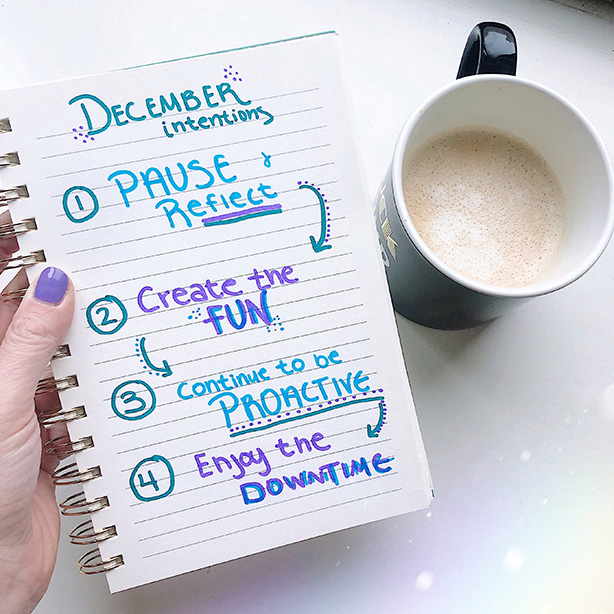 DECEMBER
intentions
1 PAUSE &
Reflect
2 Create the
FUN
3 Continue to be
PROACTIVE
4 Enjoy the
DOWNTIME